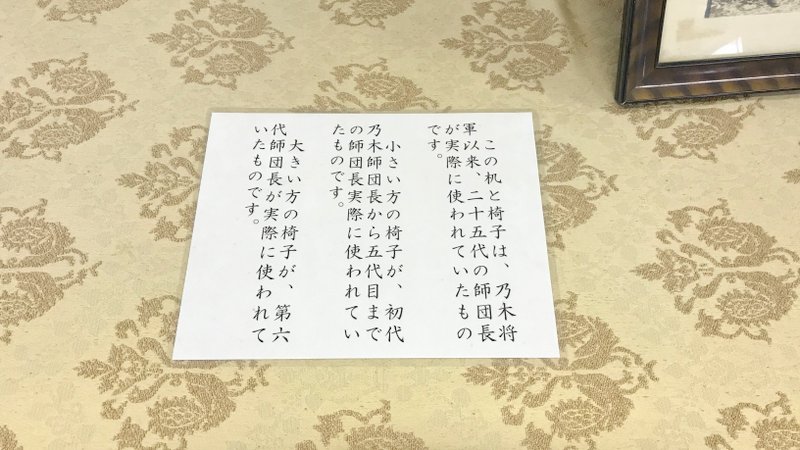 この机と椅子は、乃木将
軍以来、二十五代の師団長
が実際に使われていたもの
です。
小さい方の椅子が、初代
乃木師団長から五代目まで
の師団長実際に使われてい
たものです。
大きい方の椅子が、第六
代師団長が実際に使われて
いたものです。